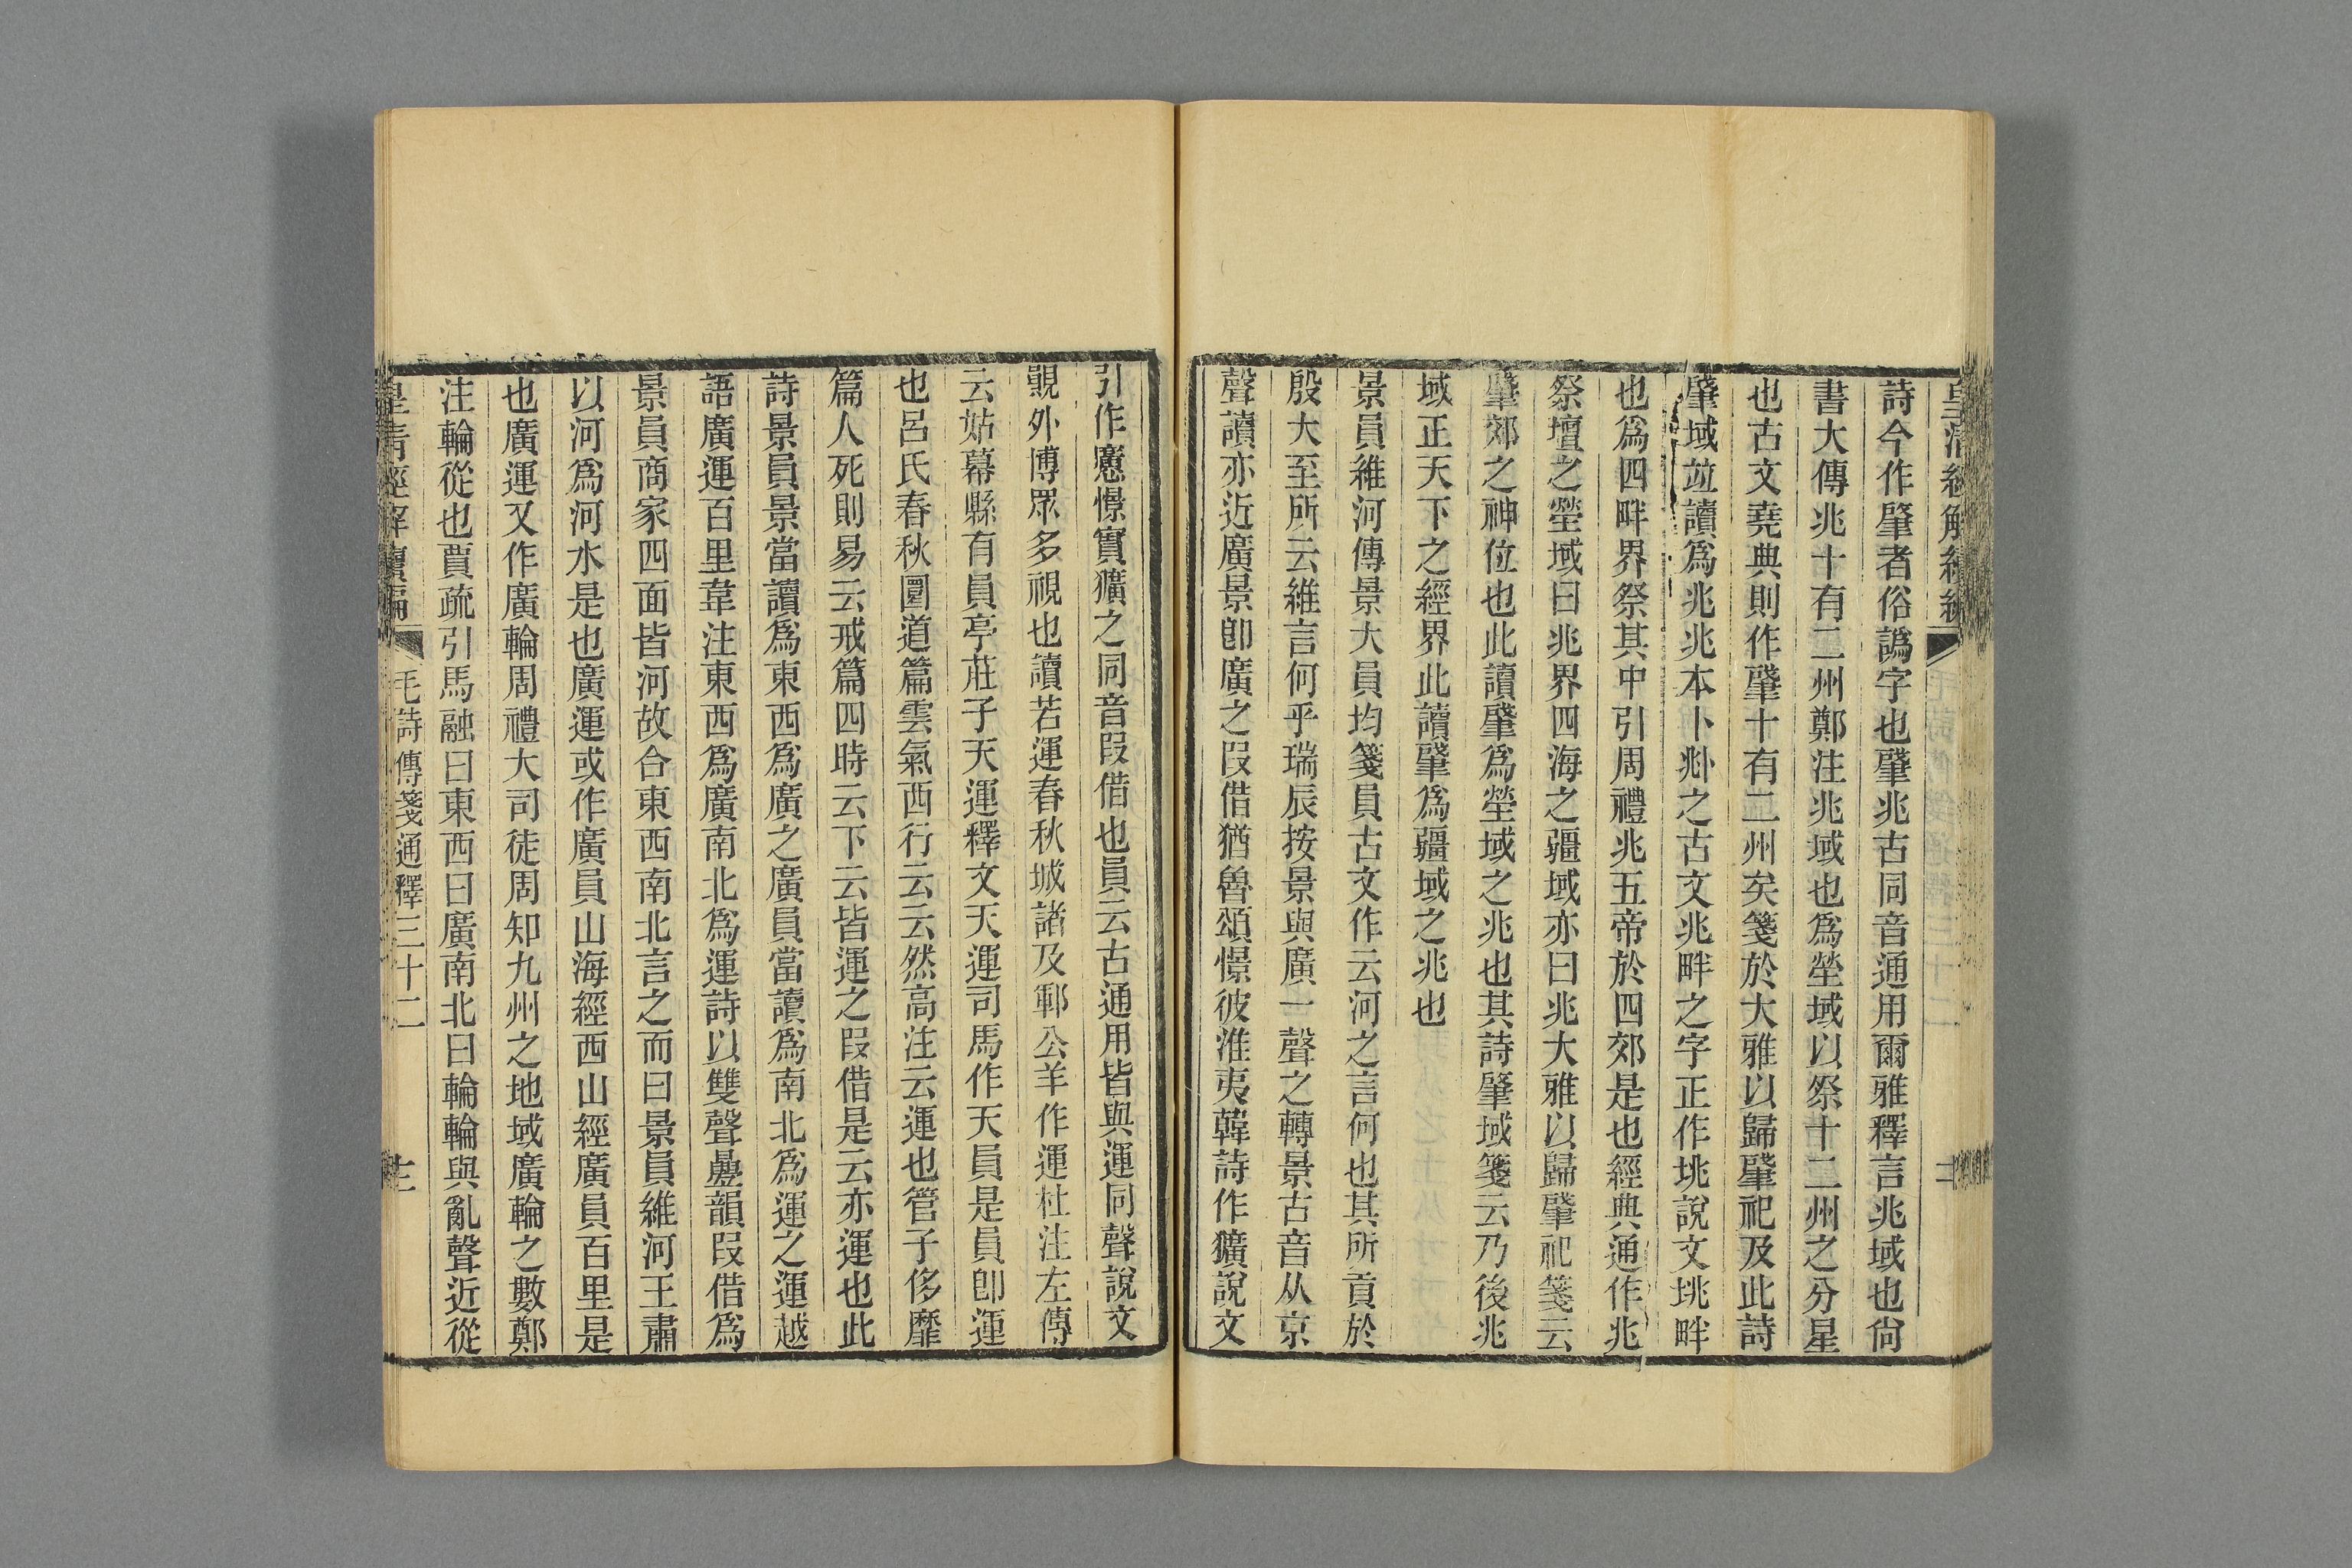 皇清經解續編
詩今作肇者俗譌字也肈兆古同音通用爾雅釋言兆域也尙
書大傳兆十有二州鄭注兆域也爲塋域以祭十二州之分星
也古文堯典則作肈十有二州矣箋於大雅以歸肈祀及此詩
肈域竝讀爲兆兆本卜𠧞之古文兆畔之字正作垗說文垗畔
也爲四畔界祭其中引周禮兆五帝於四郊是也經典通作兆
祭壇之塋域曰兆界四海之疆域亦曰兆大雅以歸肈祀箋云
肈郊之神位也此讀肈爲塋域之兆也其詩肈域箋云乃後兆
域正天下之經界此讀肈爲疆域之兆也
景員維河傳景大員均箋員古文作云河之言何也其所貢於
殷大至所云維言何乎瑞辰按景與廣一聲之轉景古音从京
聲讀亦近廣景卽廣之叚借猶魯頌憬彼淮夷韓詩作獷說文
引作懬憬實獷之同音叚借也員云古通用皆與運同聲說文
覞外博眾多視也讀若運春秋城諸及鄆公羊作運杜注左傳
云姑幕縣有員亭莊子天運釋文天運司馬作天員是員卽運
也呂氏春秋圜道篇雲氣西行云云然高注云運也管子侈靡
篇人死則易云戒篇四時云下云皆運之叚借是云亦運也此
詩景員景當讀爲東西爲廣之廣員當讀爲南北爲運之運越
語廣運百里韋注東西爲廣南北爲運詩以雙聲疊韻叚借爲
景員商家四面皆河故合東西南北言之而曰景員維河王肅
以河爲河水是也廣運或作廣員山海經西山經廣員百里是
也廣運又作廣輪周禮大司徒周知九州之地域廣輪之數鄭
注輪從也賈疏引馬融曰東西曰廣南北曰輪輪與亂聲近從
皇清經解續編 毛詩傳箋通釋三十二